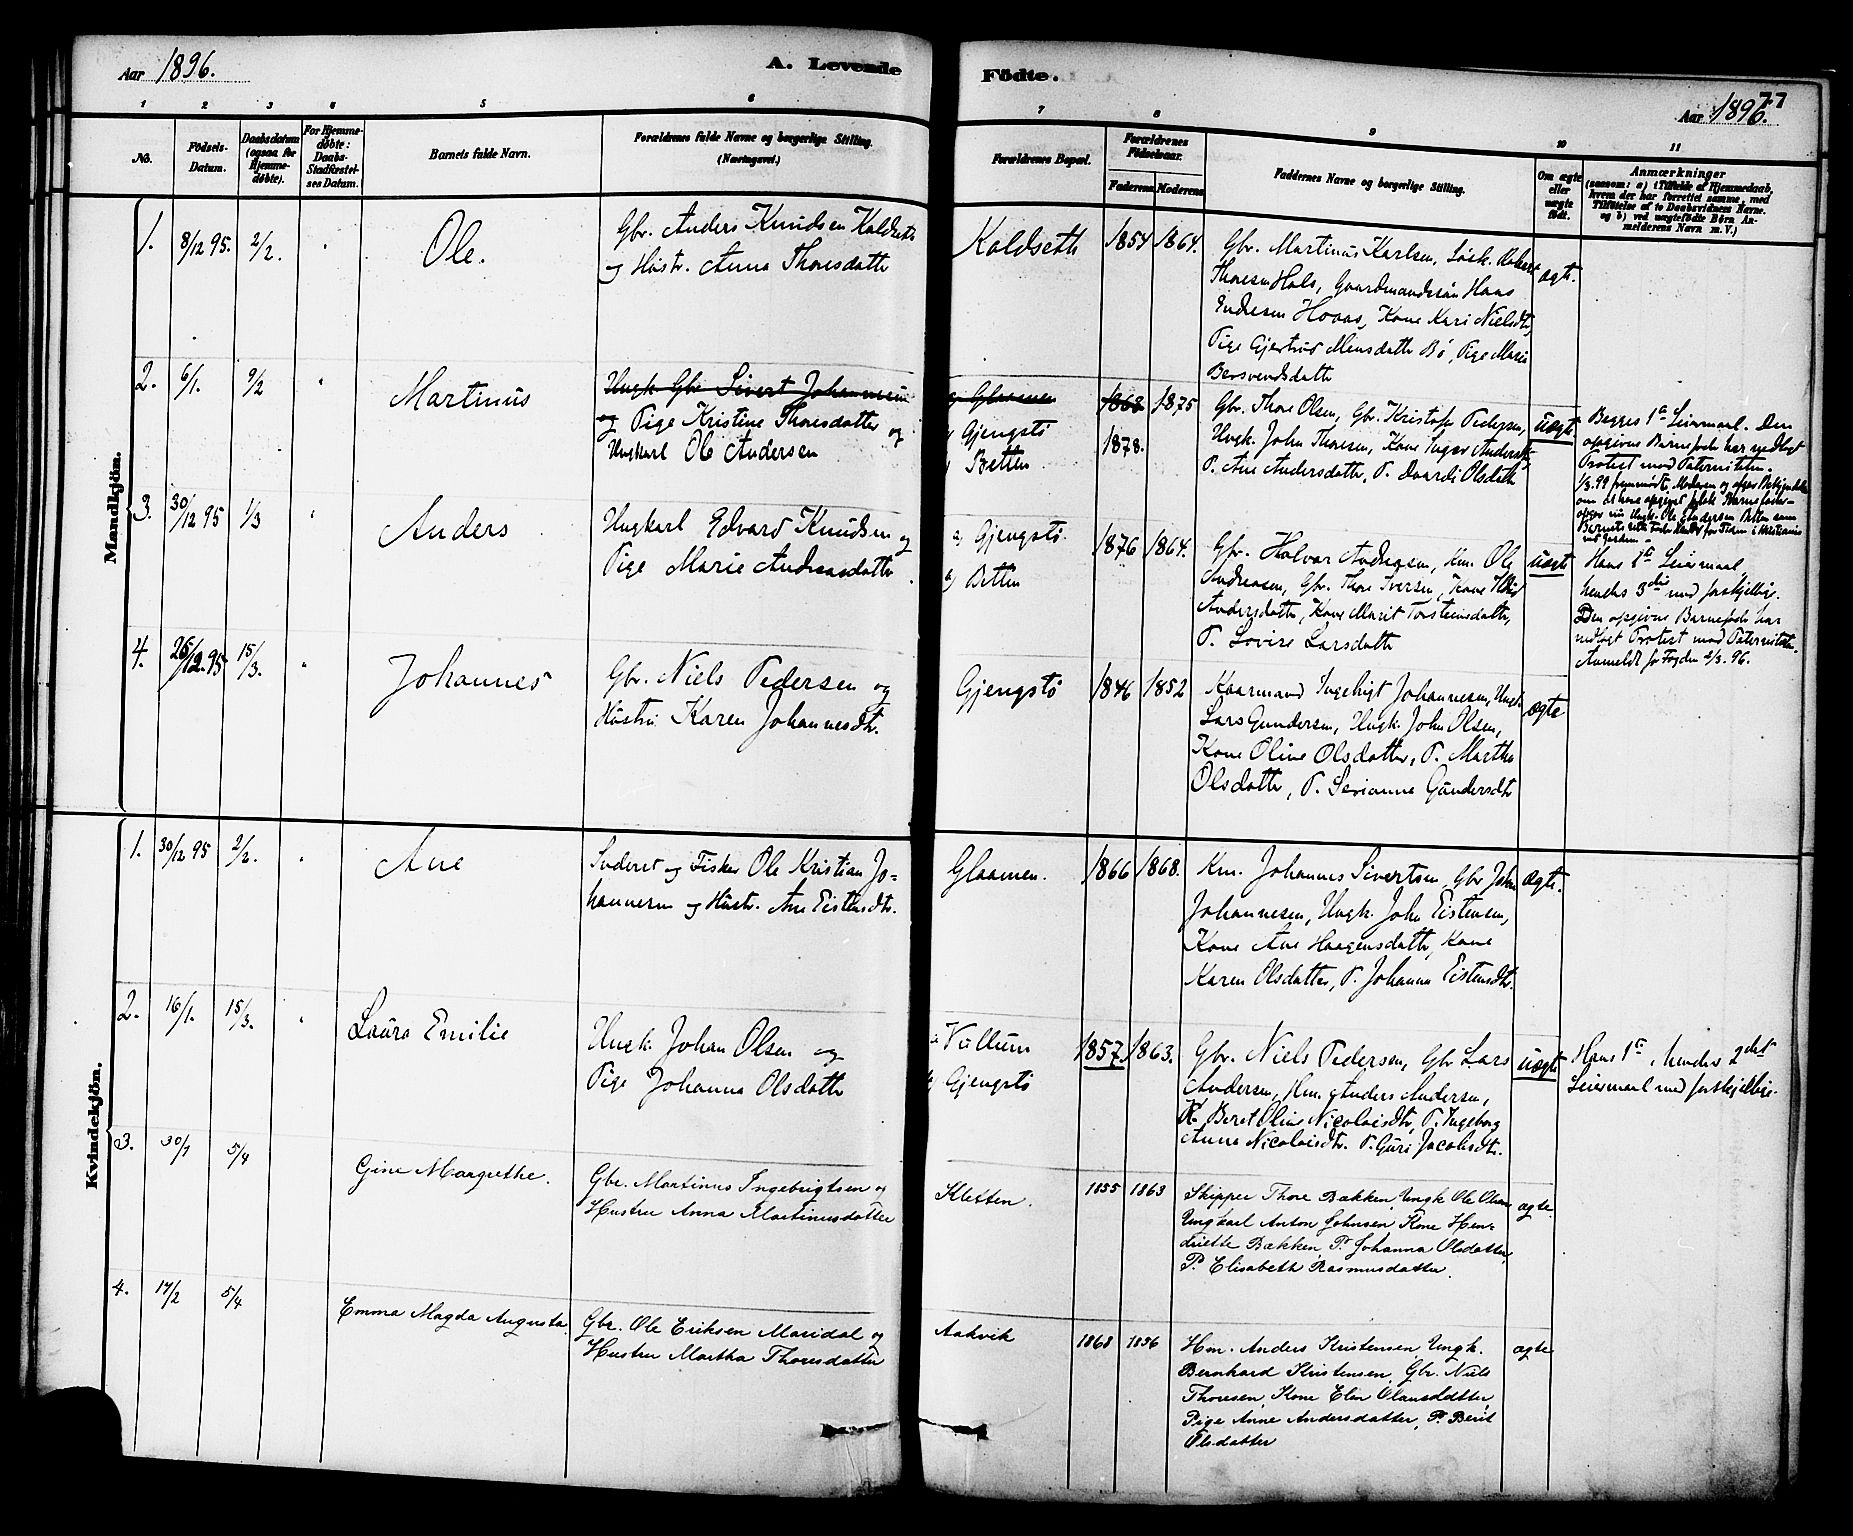 Aar 1896.
A. Levende Födte.
77
Aar 1896.
1 2 3 4 5 6 7 8 9 10 11
No.
Födsels-
Datum.
Daabsdatum
(ogsaa for
Hjemme-
døbte).
For Hjemme-
døbte:
Daabs-
Stadfæstel-
ses Datum.
Barnets fulde Navn.
Forældrenes fulde Navne og borgerlige Stilling.
(Næringsvei.)
Forældrenes Bopæl.
Forældrenes
Födselsaar.
Faderens Moderens
Faddernes Navne og borgerlige Stilling.
Om ægte
eller
uægte
født.
Anmærkninger
(saasom: a) i Tilfælde af Hjemmedaab,
hvem der har forrettet samme, med
Tilføielse af to Daabsvidners Navne.
og b) ved uægtefødte Børn An-
melderens Navn m. V.)
Mandkjön.
1. 8/12 95. 2/2. Ole.
Gbr. Anders Knudsen Koldseth
og Hustr. Anna Thoresdatter
Koldseth 1854 1864.
Gbr. Martinus Karlsen, Løsk.
Thoresen Hals, Gaardmandssön Hans
Endresen Hovas, Kone Kari Nielsdtr,
Pige Gjertrud Monsdatter Bö, Pige Marie
Bersvendsdatter
ægte.
2. 6/1. 9/2 Martinus
Ungk. Gbr Sivert Johannesen
og Pige Kristine Thoresdatter og
Ungkarl Ole Andersen
Glaamen
Gjengstö
Betten
1868 1875
1878.
Gbr. Thore Olsen, Gbr. Kristofer Pedersen,
Ungk. John Thoresen, Kone Inger Andersdtr,
P. Ane Andersdatter, P. Olsdatter
uægte
Begges 1ste Leiermaal. Den
opgivne Barnefader har nedlagt
Protest mod Paterniteten.
3. 30/12 95 1/3 Anders
Ungkarl Edvard Knudsen og
Pige Marie Andreasdatter
a) Gjengstö.
b) Betten
1876 1864.
Gbr. Halvor Andreasen, Hm. Ole
Andreasen, Gbr. Thore Iversen, Kone
Andersdatter, Kone Marit Torsteinsdatter,
P. Lovise Larsdatter
uægte
Hans 1ste Leiermaal
hendes 3die med forskjellige.
Den opgivne Barnefader har
nedlagt Protest mod Paterniteten.
Anmeldt for Fogden 2/3. 96.
4. 26/12. 95 15/3. Johannes
Gbr. Niels Pedersen og
Hustru Karen Johannesdtr.
Gjengstö 1846 1852
Kaarmand Ingebrigt Johannesen, Ungk.
Lars Gundersen, Ungk. John Olsen,
Kone Oline Olsdatter, P. Martha
Olsdatter, P. Serianna Gundersdtr
ægte
Kvindekjön.
1. 30/12 95 2/2. Ane
Inderst og Fisker Ole Kristian Jo-
hannesen og Hustr. Ane Eistensdtr.
Glaamen. 1866 1868.
Km. Johannes Sivertsen, Gbr John
Johannesen, Ungk. John Eistensen,
Kone Ane Haagensdatter, Kone
Karen Olsdatter, P. Johanna Eistensdtr.
ægte.
2. 16/1. 15/3. Laura Emilie
Ungk. Johan Olsen og
Pige Johanna Olsdatter
a) Vullum
b) Gjengstö
1857 1863.
Gbr. Niels Pedersen, Gbr Lars
Andersen, Hm. Anders Andersen,
K. Beret Oline Nicolaisdtr, P. Ingeborg
Anne Nicolaisdtr. P. Guri Jacobsdtr.
uægte
Hans 1ste, hendes 2det
Leiermaal med forskjellige.
3. 30/1 5/4 Gine Margrethe.
Gbr. Martinus Ingebrigtsen og
Hustru Anna Martinusdatter
Kletten. 1855 1863
Skipper Thore Bækken, Ungk Ole Olsen
Ungkarl Anton Johnsen, Kone Hen-
driette Bækken, P. Johanna Olsdatter,
P. Elisabeth Rasmusdatter.
ægte.
4. 17/2 5/4 Emma Magda Augusta.
Gbr. Ole Eriksen Maridal og
Hustru Martha Thoresdatter
Aakvik 1868 1856
Hm. Anders Kristensen, Ungk.
Bernhard Kristensen, Gbr. Niels
Thoresen, Kone Elen Olausdatter,
Pige Anne Andersdatter, P. Berit
Olsdatter
ægte